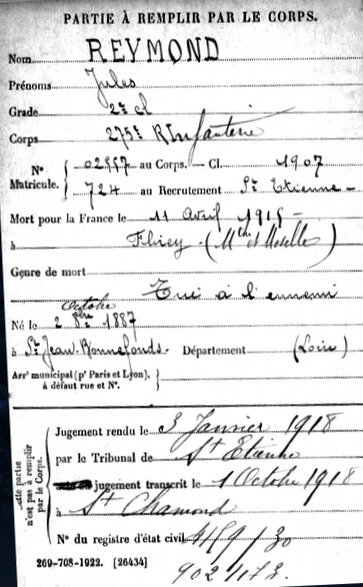 PARTIE À REMPLIR PAR LE CORPS.
Nom REYMOND
Prénoms Jules
Grade 2e cl
Corps 275e R Infanterie
No Matricule. 02557 au Corps. — Cl. 1907
724 au Recrutement St Etienne
Mort pour la France le 11 Avril 1915
à Flirey (Mthe et Moselle)
Genre de mort
Tué à l'ennemi
Octobre
Né le 2 8bre 1887
à St Jean-Bonnefonds. Département (Loire)
Arrt municipal (pr Paris et Lyon), à défaut rue et No.
cette partie n'est pas à remplir par le Corps.
Jugement rendu le 3 Janvier 1918
par le Tribunal de St Etienne
jugement transcrit le 1 Octobre 1918
à St Chamond
No du registre d'état civil 459/30
269-708-1922. [26434]